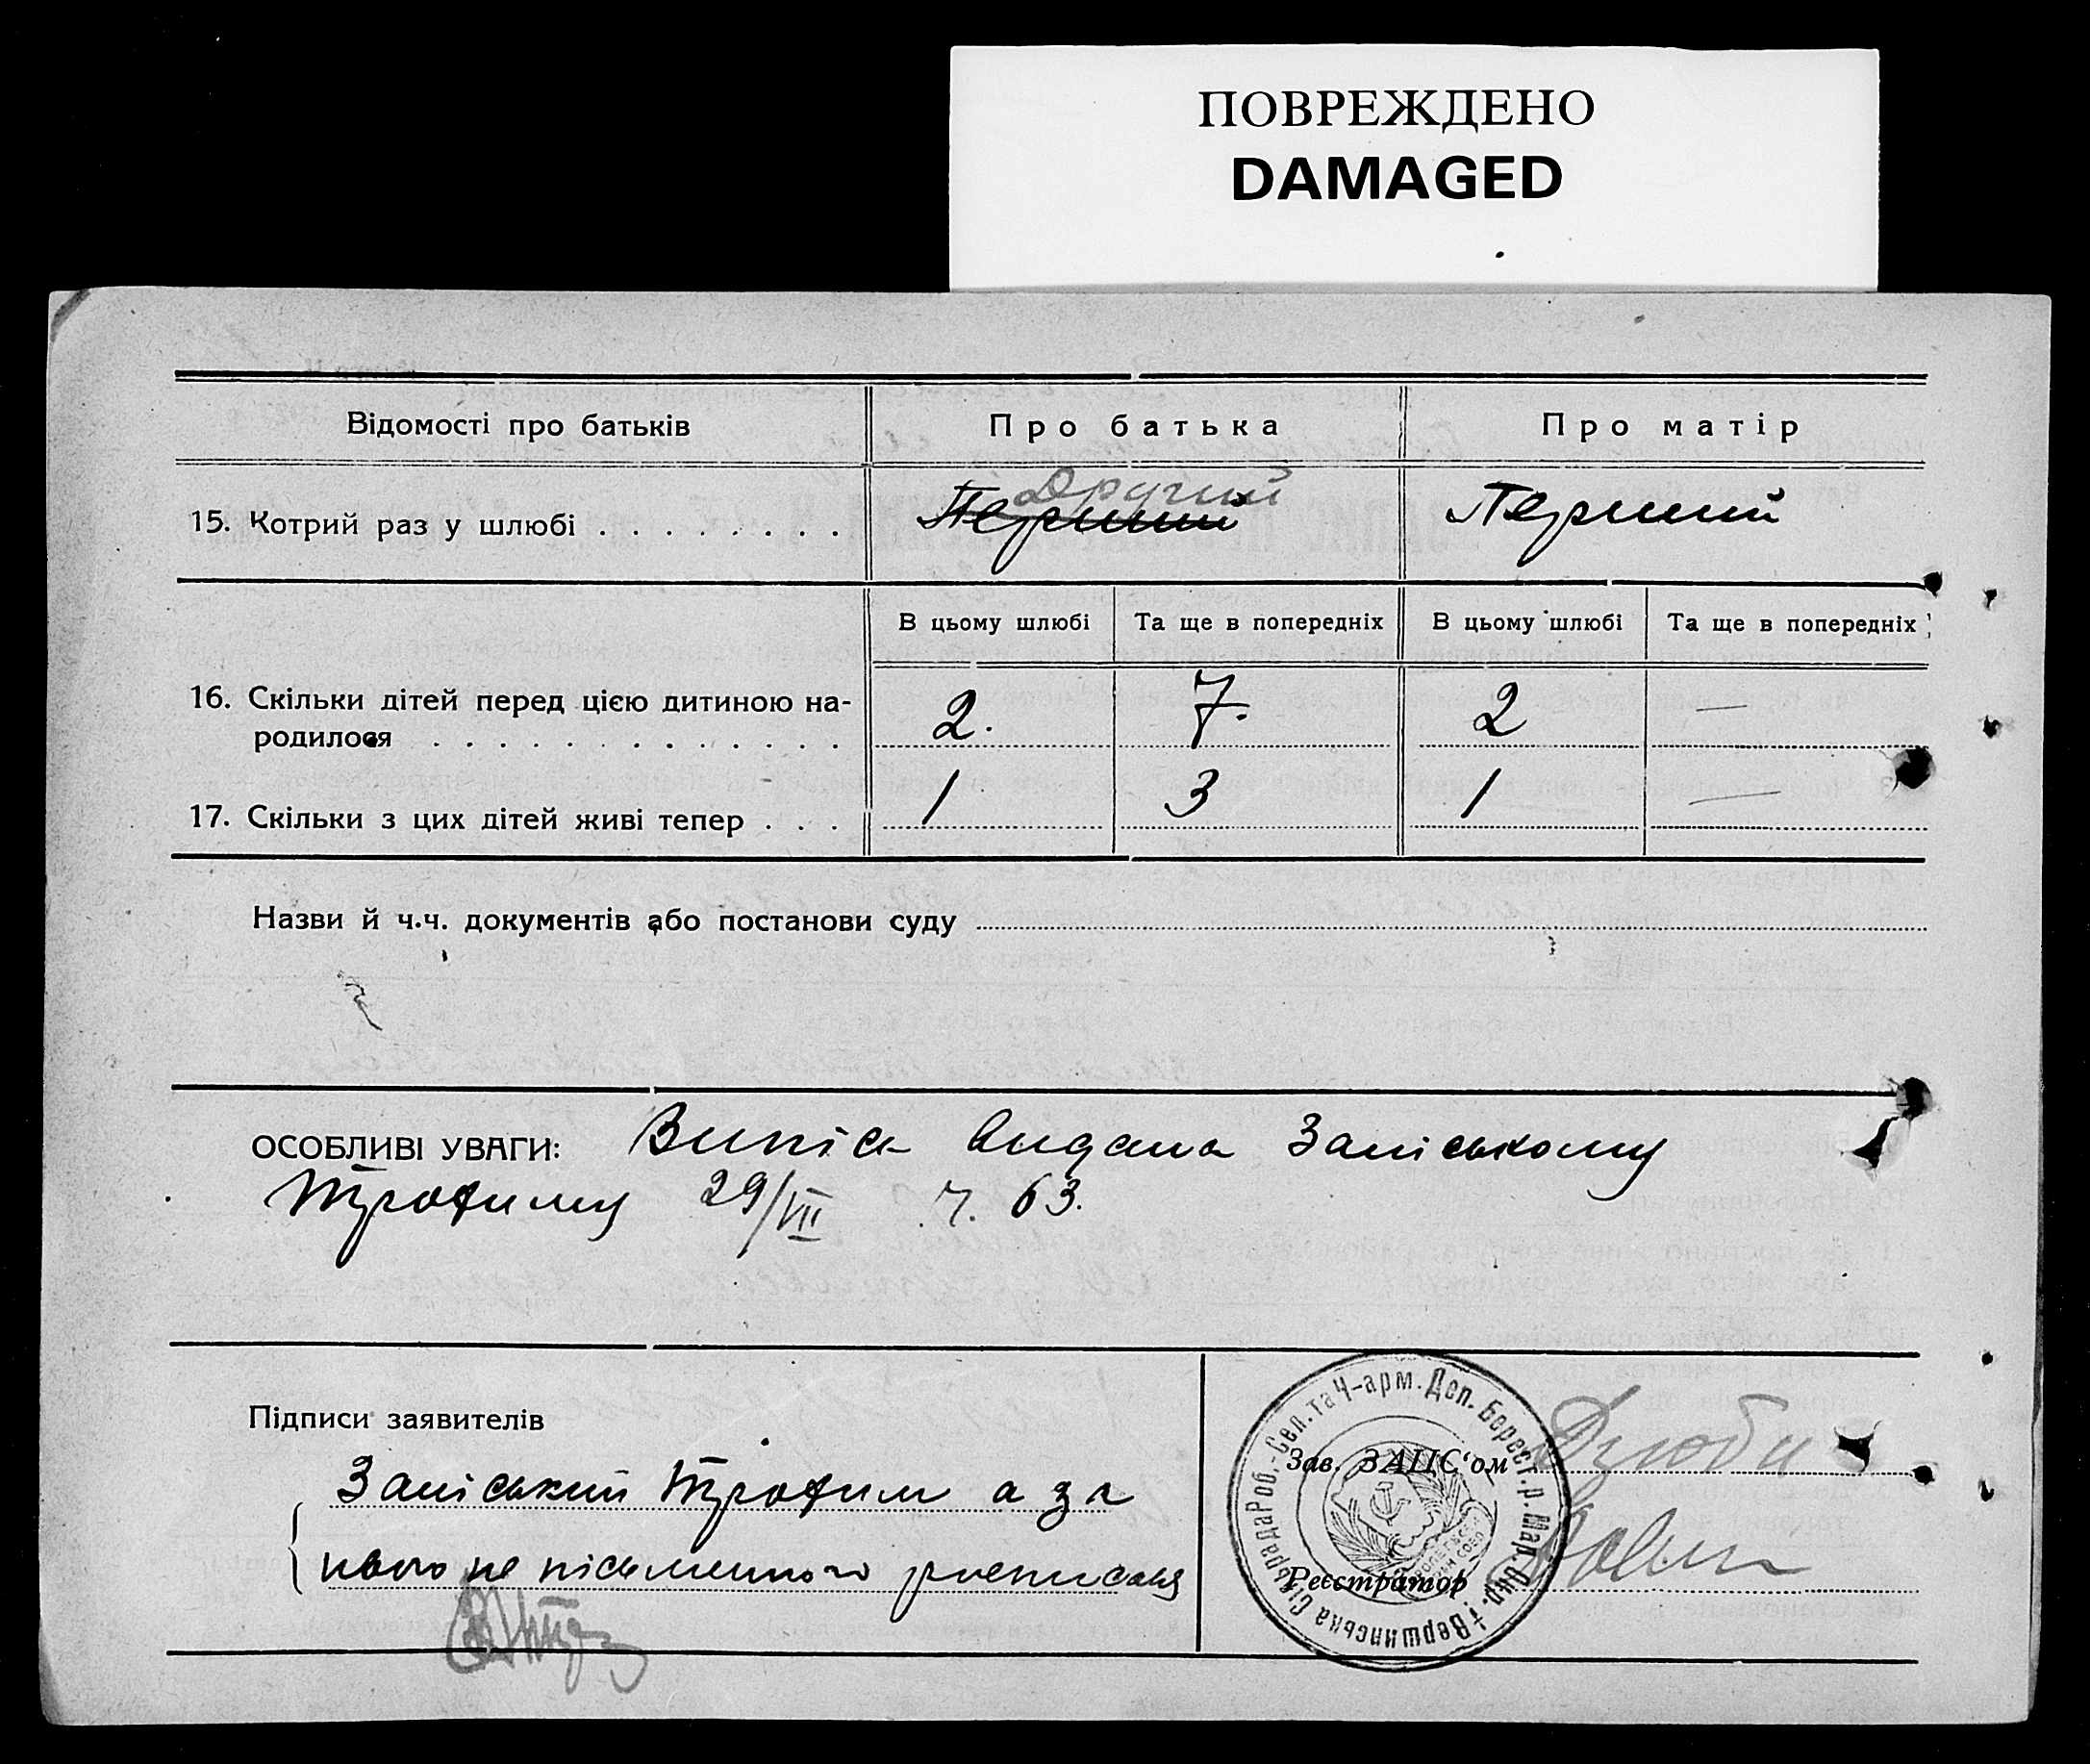 ПОВРЕЖДЕНО
DAMAGED
Відомості про батьків
Про батька
Про матір
15. Котрий раз у шлюбі . . . . . . . .
Другий
Перший
Перший
В цьому шлюбі
Та ще в попередніх
В цьому шлюбі
Та ще в попередніх
16. Скільки дітей перед цією дитиною на-
родилося . . . . . . . . . . . . .
2.
7.
2
—
17. Скільки з цих дітей живі тепер . . .
1
3
1
—
Назви й ч.ч. документів або постанови суду
ОСОБЛИВІ УВАГИ: Випіс видана Заміському
Трофиму 29/VII ч. 63.
Підписи заявителів
Заміський Трофим а за
його не пісьменного росписавсь
Зав. ЗАПС'ом Дзюба
Реєстратор
Вершинська Сільрада Роб.-Сел. та Ч-арм. Деп. Берест. р. Мар. Окр.